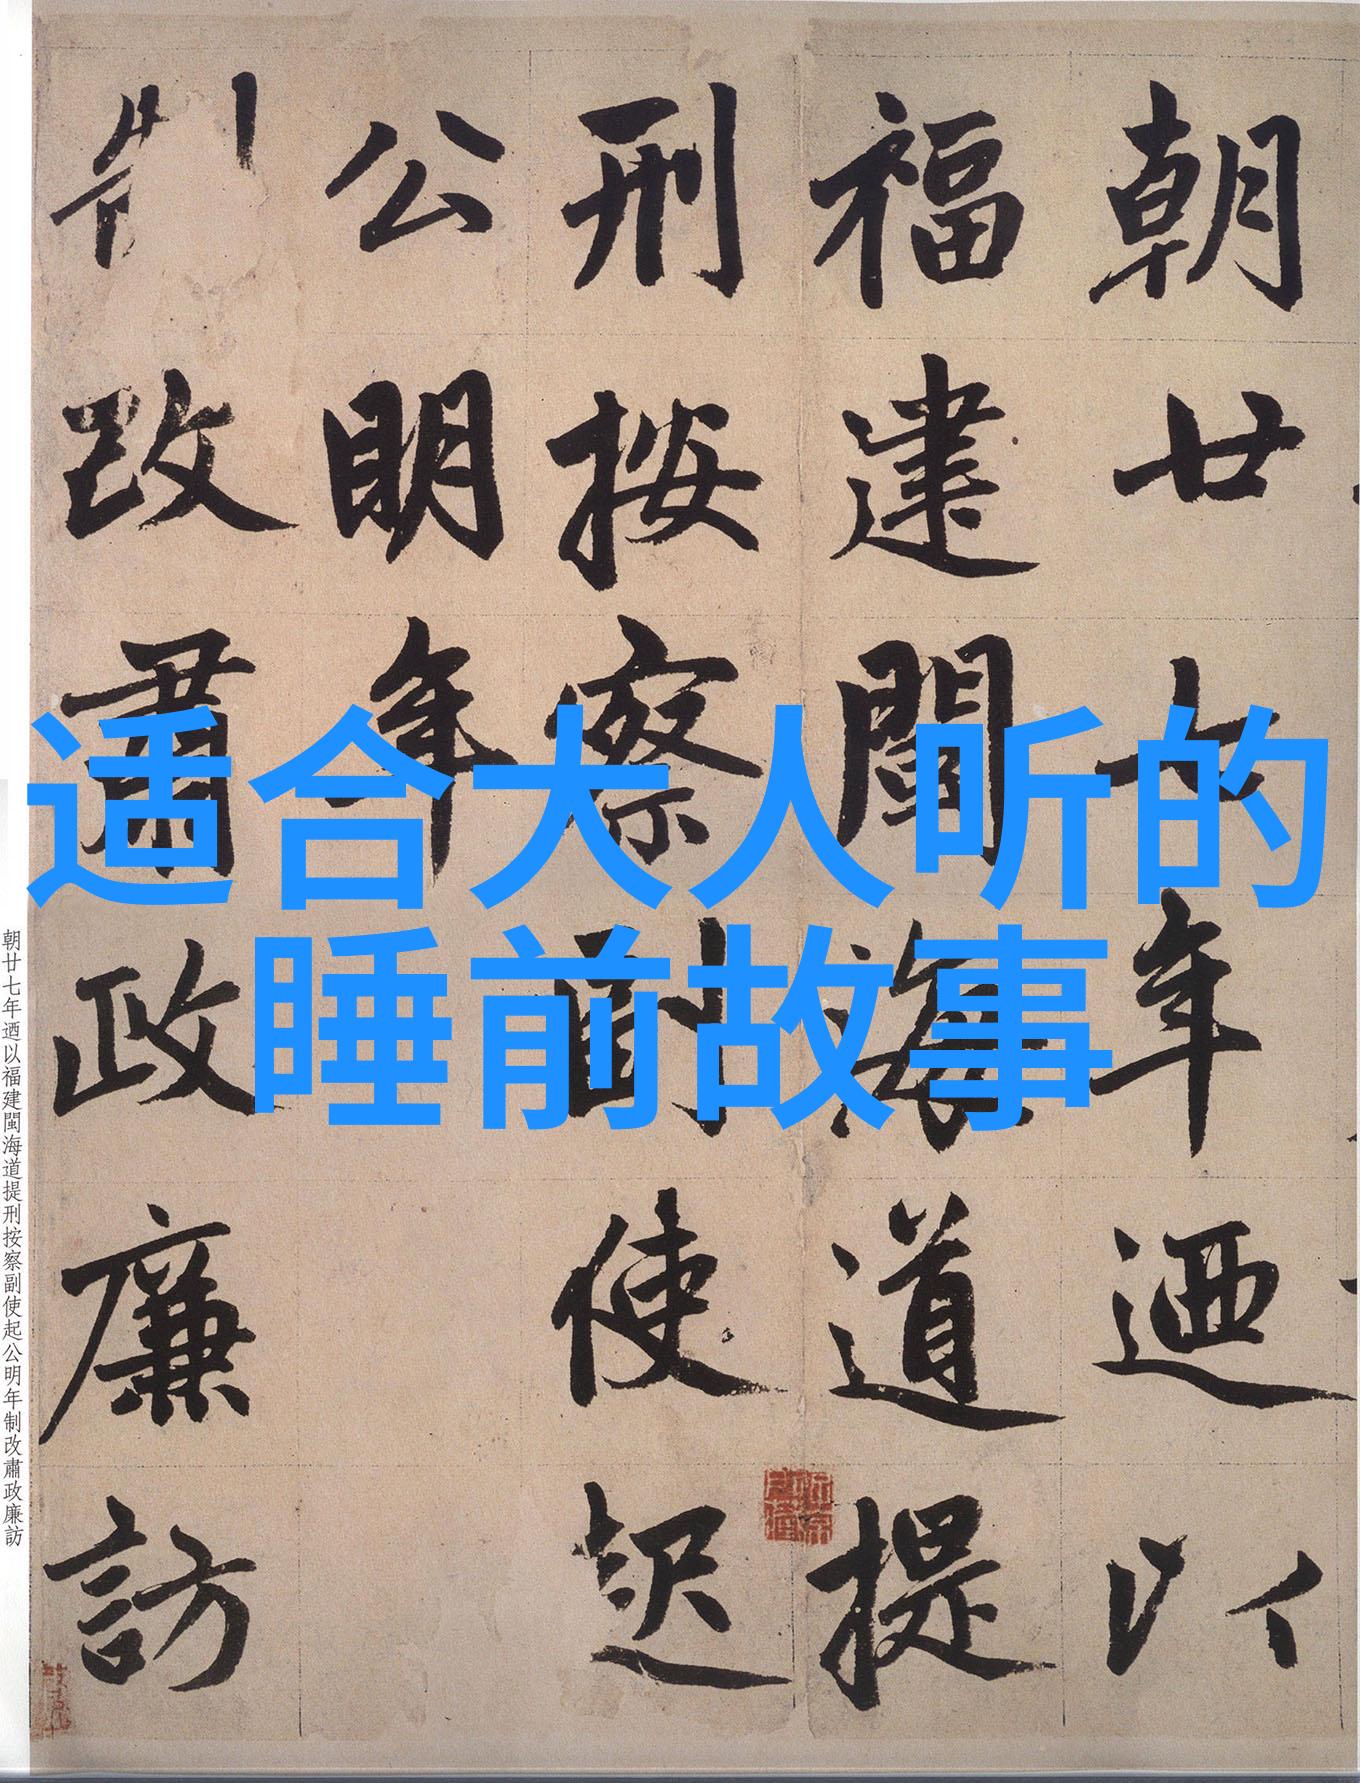 朝廿七年迺以
福建閩海道提
刑按察副使起
公明年
制改肅政廉訪
适合大人听的
睡前故事
朝廿七年迺以福建閩海道提刑按察副使起公明年制改肅政廉訪